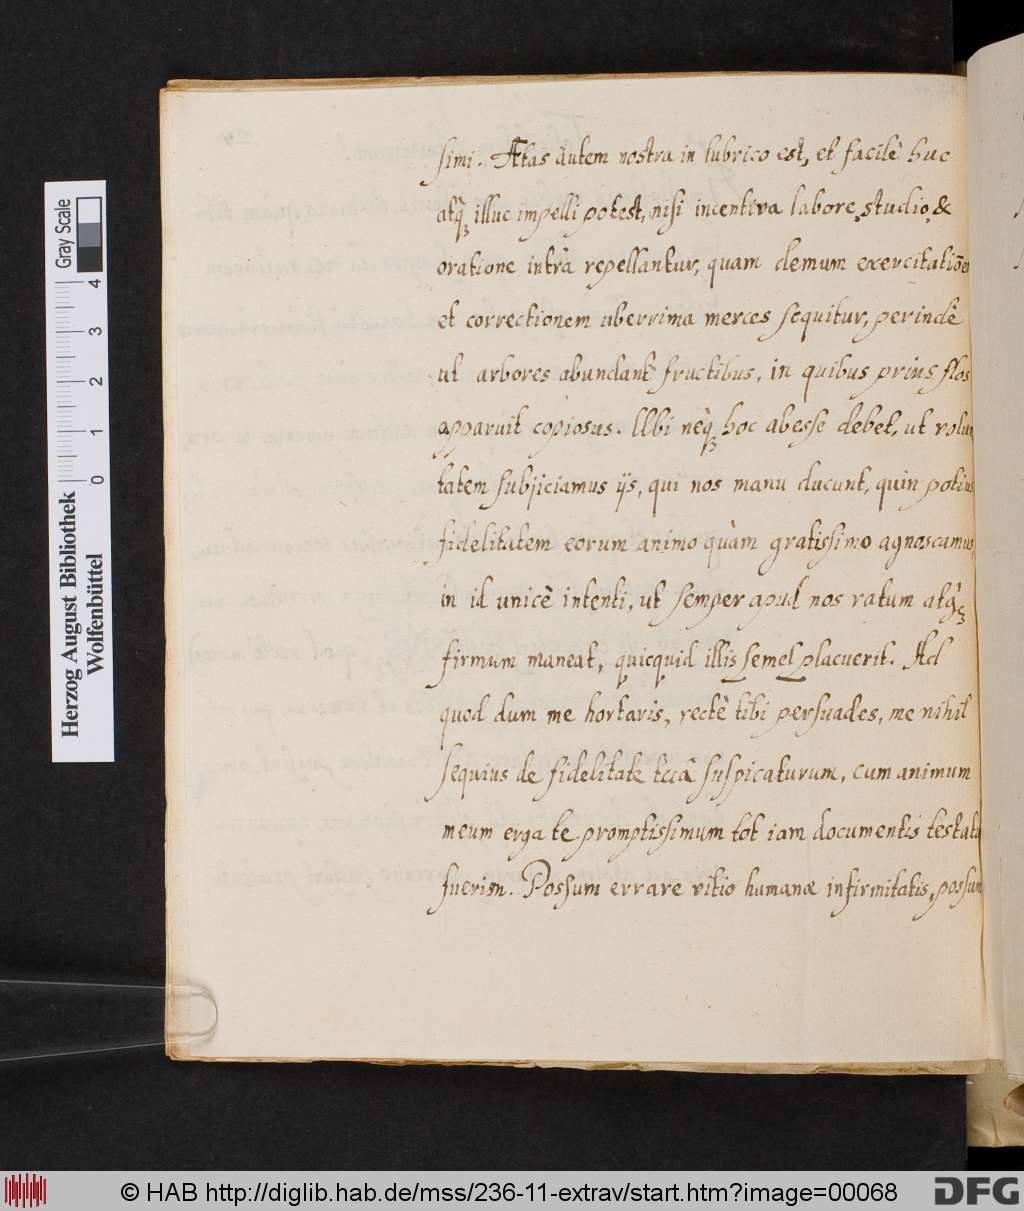 simi. Ætas autem nostra in lubrico est, et facilè huc
atq̀ꝫ illuc impelli potest, nisi incentiva labore, studio, &
oratione intrà repellantur, quam demum exercitatiōe
et correctionem uberrima merces sequitur, perindè
ut arbores abundant fructibus, in quibus prius flos
apparuit copiosus. Ubi neq̀ꝫ hoc abesse debet, ut volun
tatem subjiciamus ijs, qui nos manu ducunt, quin potius
fidelitatem eorum animo quàm gratissimo agnoscamus,
in id unicè intenti, ut semper apud nos ratum atq̀ꝫ
firmum maneat, quicquid illis semel placuerit. Ad
quod dum me hortaris, rectè tibi persuades, me nihil
sequius de fidelitate tuâ suspicaturum, cum animum
meum erga te promptissimum tot iam documentis testatu
fuerim. Possum errare vitio humanæ infirmitatis, possum
Herzog August Bibliothek
Wolfenbüttel
Gray Scale
0 1 2 3 4
© HAB http://diglib.hab.de/mss/236-11-extrav/start.htm?image=00068
DFG